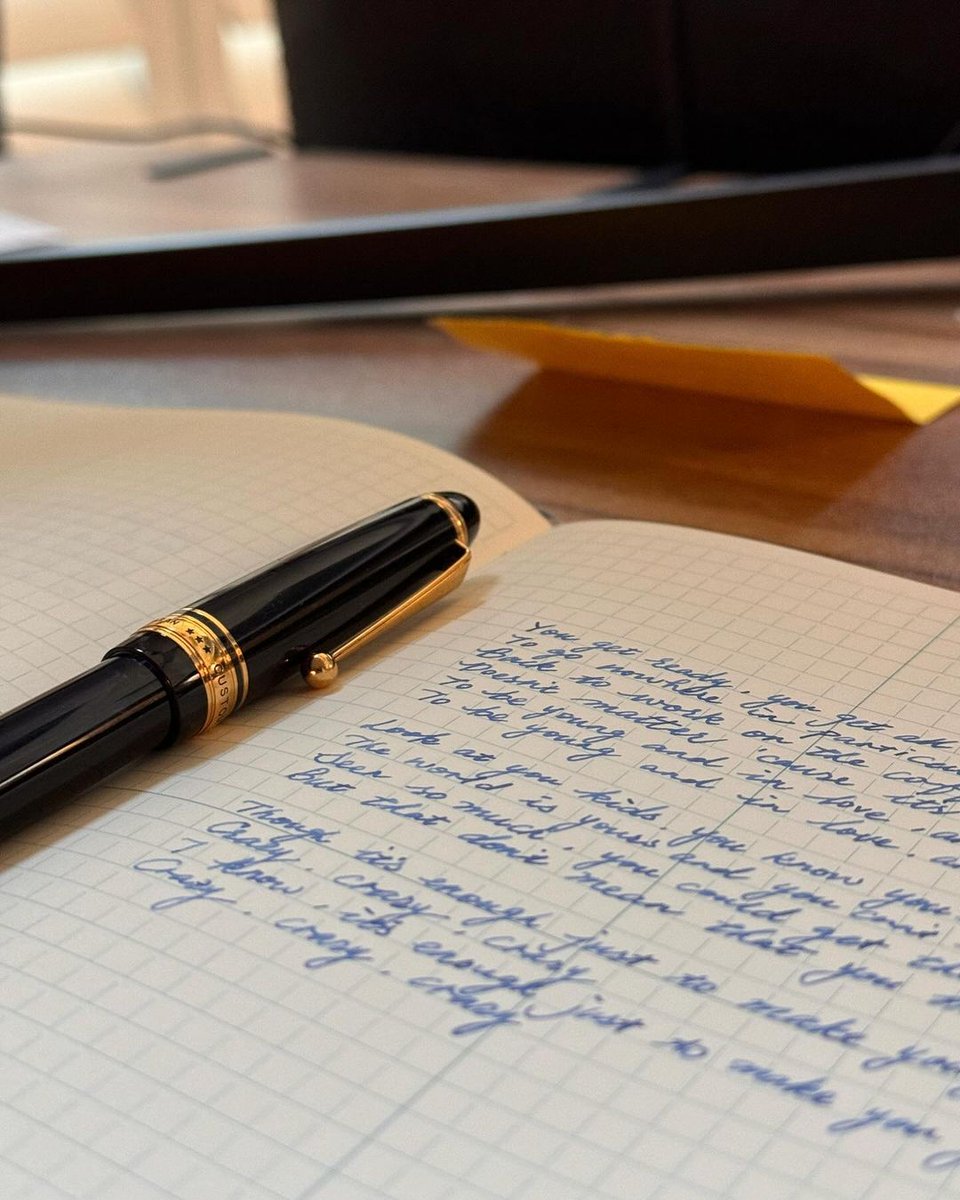 You get ready, you get
To go nowhere in
Back to work or the
Doesn't matter 'cause it's
To be young and in love,
To be young and in love,
Look at you kids, you know you
The world is yours and you
Seen so much, you could get
But that don't mean that you
Though it's enough just to make you
Crazy, crazy, crazy
I know, it's enough just to make you
Crazy, crazy, crazy